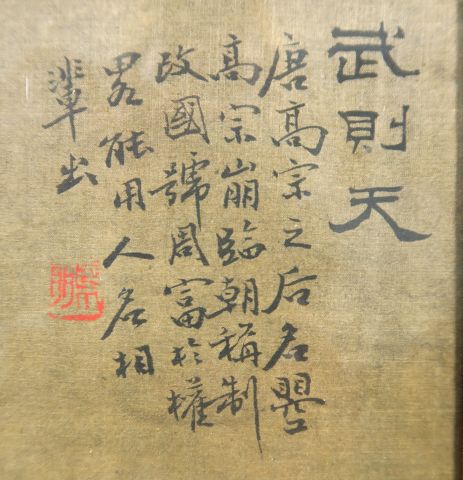 武則天
唐高宗之后名曌
高宗崩臨朝稱制
改國號周富於權
畧能用人名相
輩出